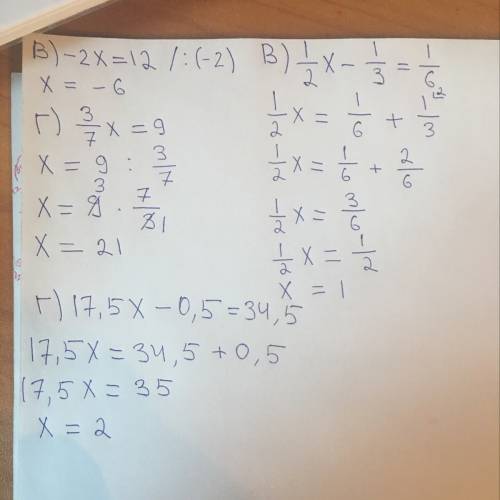 В) -2x = 12 /:(-2)
x = -6
г) 3/7 x = 9
x = 9 : 3/7
x = 9 3 · 7/3 1
x = 21
В) 1/2 x - 1/3 = 1/6
1/2 x = 1/6 + 1/3 \2
1/2 x = 1/6 + 2/6
1/2 x = 3/6
1/2 x = 1/2
x = 1
г) 17,5x - 0,5 = 34,5
17,5x = 34,5 + 0,5
17,5x = 35
x = 2